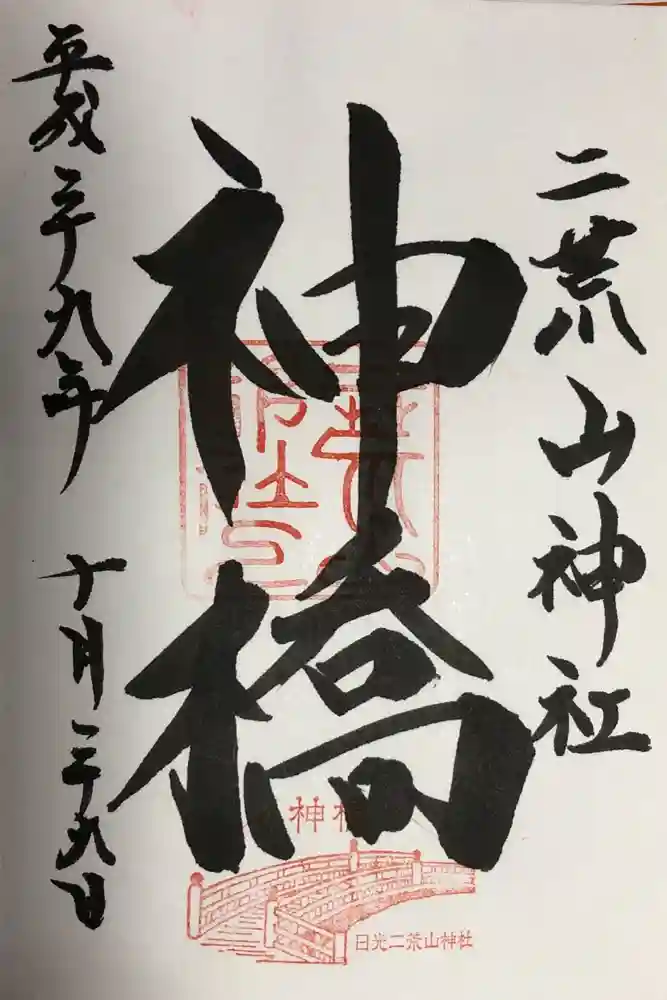 二荒山神社
神橋
平成二十九年 十月二十九日
神橋
日光二荒山神社